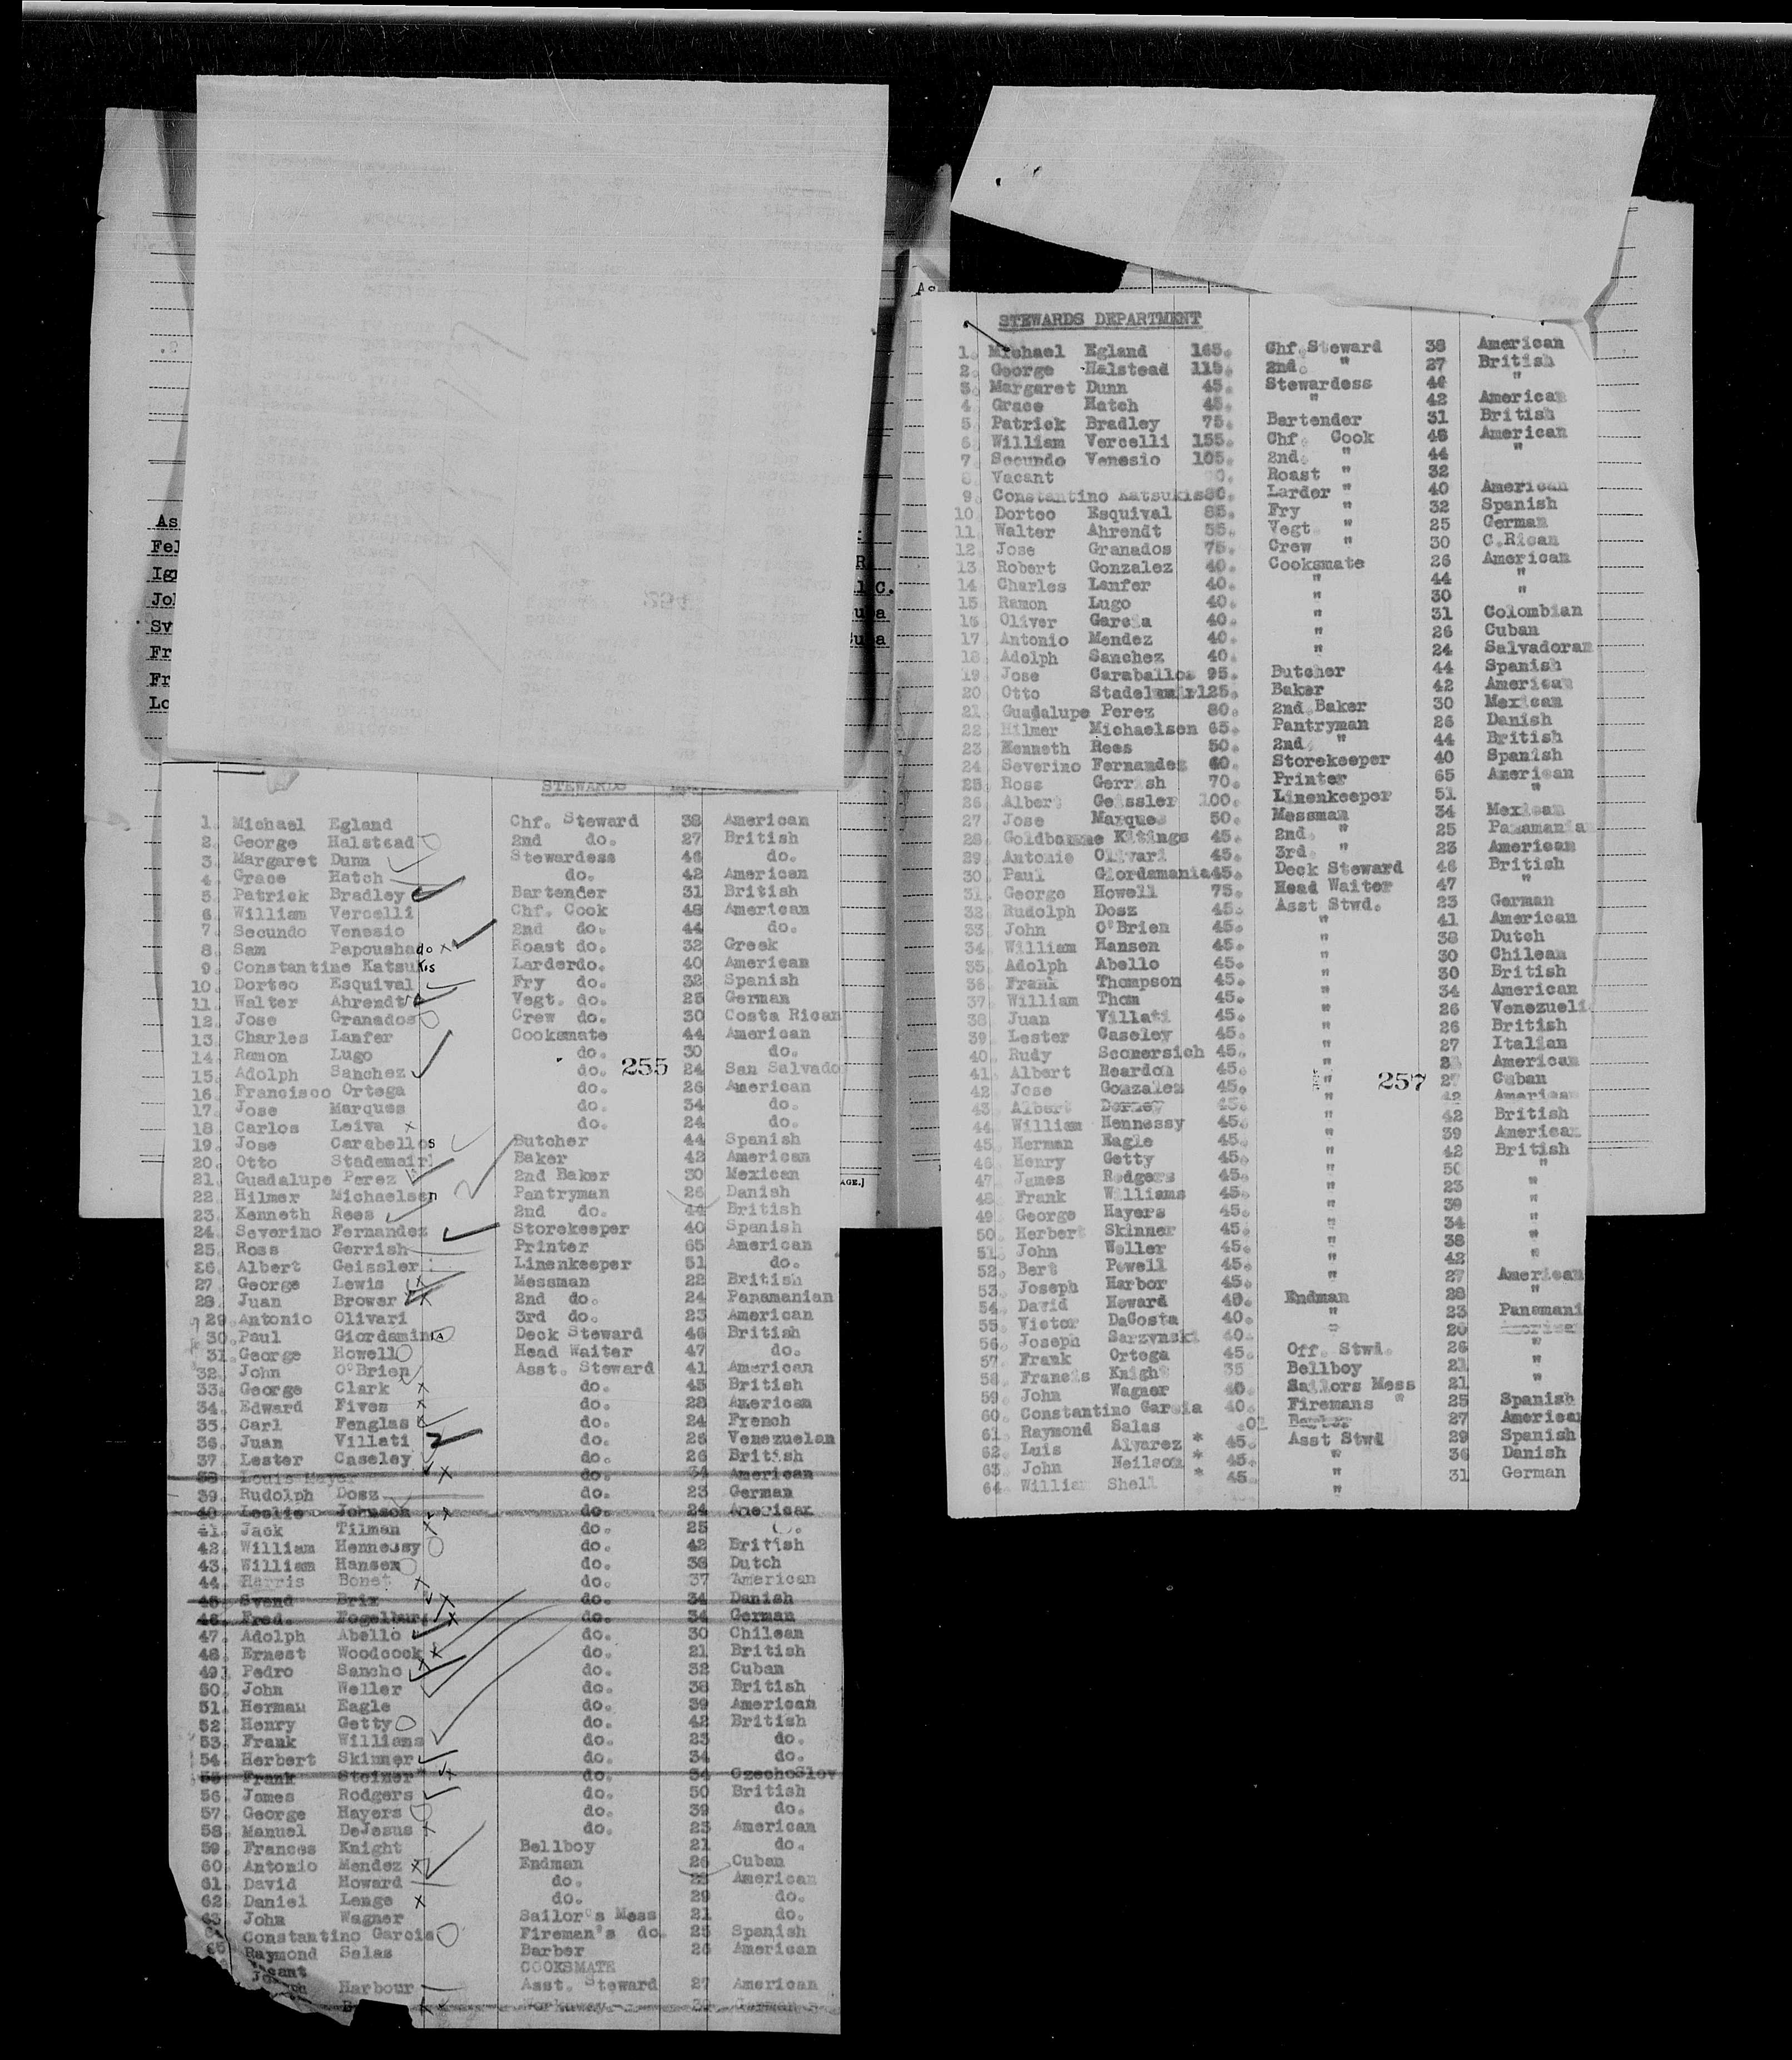 As
Fel
Ig
Jo
Sv
Fr
Fr
Lo
STEWARDS
1. Michael Egland Chf. Steward 38 American
2. George Halstead 2nd do. 27 British
3. Margaret Dunn Stewardess 46 do.
4. Grace Hatch do. 42 American
5. Patrick Bradley Bartender 31 British
6. William Vercelli Chf. Cook 48 American
7. Secundo Venesio 2nd do. 44 do.
8. Sam Papoushado x Roast do. 32 Greek
9. Constantine Katsukis Larderdo. 40 American
10. Dorteo Esquival Fry do. 32 Spanish
11. Walter Ahrendt Vegt. do. 25 German
12. Jose Granados Crew do. 30 Costa Rican
13. Charles Lanfer Cooksmate 44 American
14. Ramon Lugo do. 30 do.
255
15. Adolph Sanchez do. 24 San Salvado
16. Francisco Ortega do. 26 American
17. Jose Marques do. 34 do.
18. Carlos Leiva x do. 24 do.
19. Jose Carabellos Butcher 44 Spanish
20. Otto Stademairl Baker 42 American
21. Guadalupe Perez 2nd Baker 30 Mexican
22. Hilmer Michaelsen Pantryman 26 Danish
23. Kenneth Rees 2nd do. 44 British
24. Severino Fernandez Storekeeper 40 Spanish
25. Ross Gerrish Printer 65 American
26. Albert Geissler Linenkeeper 51 do.
27. George Lewis x Messman 22 British
28. Juan Brower x 2nd do. 24 Panamanian
29. Antonio Olivari 3rd do. 23 American
30. Paul Giordaminia Deck Steward 46 British
31. George Howell Head Waiter 47 do.
32. John O'Brien Asst. Steward 41 American
33. George Clark x do. 45 British
34. Edward Fives x do. 28 American
35. Carl Fenglas x do. 24 French
36. Juan Villati do. 26 Venezuelan
37. Lester Caseley do. 26 British
38. Louis x do. 34 American
39. Rudolph Dosz do. 23 German
40. Leslie Johnson x do. 24 American
41. Jack Tilman x do. 25 do.
42. William Hennessy do. 42 British
43. William Hansen do. 38 Dutch
44. Harris Bonet x do. 37 American
45. Svend Brix x do. 34 Danish
46. Fred. Fogelburg x do. 34 German
47. Adolph Abello do. 30 Chilean
48. Ernest Woodcock x do. 21 British
49. Pedro Sancho x do. 32 Cuban
50. John Weller do. 38 British
51. Herman Eagle do. 39 American
52. Henry Getty do. 42 British
53. Frank Williams do. 23 do.
54. Herbert Skinner do. 34 do.
55. Frank Steiner x do. 34 CzechoSlov
56. James Rodgers do. 50 British
57. George Hayers do. 39 do.
58. Manuel DeJesus x do. 23 American
59. Frances Knight Bellboy 21 do.
60. Antonio Mendez x Endman 26 Cuban
61. David Howard do. 28 American
62. Daniel Lange x do. 29 do.
63. John Wagner Sailor's Mess 21 do.
Constantino Garcia Fireman's do. 25 Spanish
65. Raymond Salas Barber 26 American
COOKSMATE
Harbour Asst. Steward 27 American
Workaway German
As
STEWARDS DEPARTMENT
1. Michael Egland 165. Chf. Steward 38 American
2. George Halstead 115. 2nd. " 27 British
3. Margaret Dunn 45. Stewardess 46 "
4. Grace Hatch 45. " 42 American
5. Patrick Bradley 75. Bartender 31 British
6. William Vercelli 155. Chf. Cook 48 American
7. Secundo Venesio 105. 2nd. " 44 "
8. Vacant Roast " 32
9. Constantino Katsukis 80. Larder " 40 American
10. Dorteo Esquival 85. Fry " 32 Spanish
11. Walter Ahrendt 55. Vegt " 25 German
12. Jose Granados 75. Crew " 30 C.Rican
13. Robert Gonzalez 40. Cooksmate 26 American
14. Charles Lanfer 40. " 44 "
15. Ramon Lugo 40. " 30 "
16. Oliver Garcia 40. " 31 Colombian
17. Antonio Mendez 40. " 26 Cuban
18. Adolph Sanchez 40. " 24 Salvadoran
19. Jose Caraballos 95. Butcher 44 Spanish
20. Otto Stadelmairl 125. Baker 42 American
21. Guadalupe Perez 80. 2nd. Baker 30 Mexican
22. Hilmer Michaelsen 65. Pantryman 26 Danish
23. Kenneth Rees 50. 2nd. " 44 British
24. Severino Fernandez 60. Storekeeper 40 Spanish
25. Ross Gerrish 70. Printer 65 American
26. Albert Geissler 100. Linenkeeper 51 "
27. Jose Marques 50. Messman 34 Mexican
28. Goldbourne Kitings 45. 2nd. " 25 Panamanian
29. Antonio Olivari 45. 3rd. " 23 American
30. Paul Giordamania 45. Deck Steward 46 British
31. George Howell 75. Head Waiter 47 "
32. Rudolph Dosz 45. Asst Stwd. 23 German
33. John O'Brien 45. " 41 American
34. William Hansen 45. " 38 Dutch
35. Adolph Abello 45. " 30 Chilean
36. Frank Thompson 45. " 30 British
37. William Thom 45. " 34 American
38. Juan Villati 45. " 26 Venezueli
39. Lester Caseley 45. " 26 British
40. Rudy Scomersich 45. " 27 Italian
41. Albert Reardon 45. " American
42. Jose Gonzalez 45. " 27 Cuban
257
43. Albert 45. " 42 American
44. William Hennessy 45. " 42 British
45. Herman Eagle 45. " 39 American
46. Henry Getty 45. " 42 British
47. James Rodgers 45. " 50 "
48. Frank Williams 45. " 23 "
49. George Hayers 45. " 39 "
50. Herbert Skinner 45. " 34 "
51. John Weller 45. " 38 "
52. Bert Powell 45. " 42 "
53. Joseph Harbor 45. " 27 American
54. David Howard 40. Endman 28 "
55. Victor DaCosta 40. " 23 Panamani
56. Joseph Sarzynski 40. " 20 American
57. Frank Ortega 45. Off. Stwd. 26 "
58. Francis Knight 35 Bellboy 21 "
59. John Wagner 40. Sailors Mess 21 "
60. Constantino Garcia 40. Firemans " 25 Spanish
61. Raymond Salas Barber 27 American
62. Luis Alvarez * 45. Asst Stwd 29 Spanish
63. John Neilson * 45. " 36 Danish
64. William Shell * 45 " 31 German